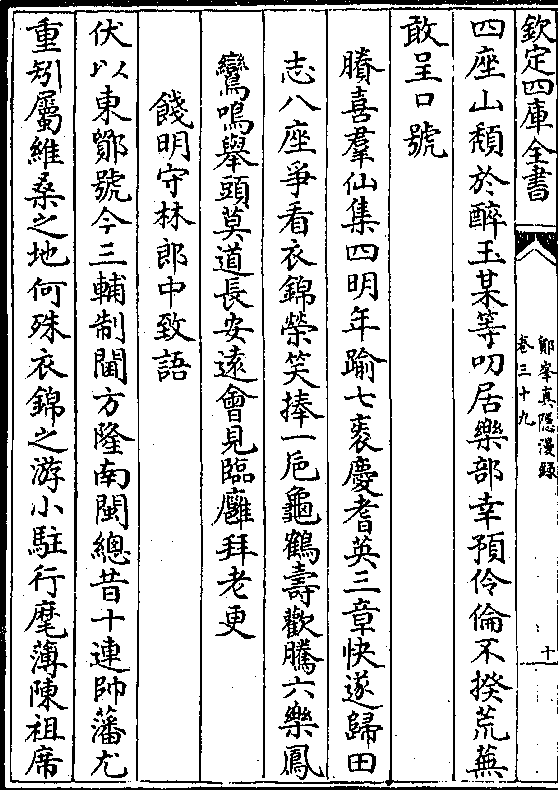 欽定四庫全書
鄮峯真隱漫録
卷三十九
十
四座山頹於醉玉某等叨居樂部幸預伶倫不揆荒蕪
敢呈口號
賸喜羣仙集四明年踰七袠慶耆英三章快遂歸田
志八座爭看衣錦榮笑捧一巵龜鶴壽歡騰六樂鳳
鸞鳴舉頭莫道長安遠會見臨廱拜老更
餞明守林郎中致語
伏以東鄮號今三輔制閫方隆南閩總昔十連帥藩尤
重矧屬維桑之地何殊衣錦之游小駐行麾薄陳祖席